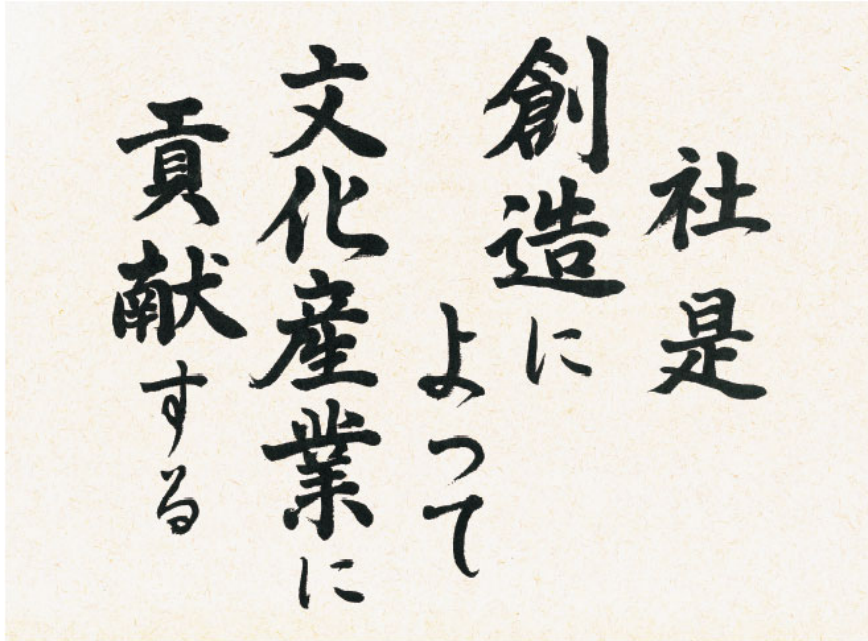 社是
創造に
よって
文化産業に
貢献する